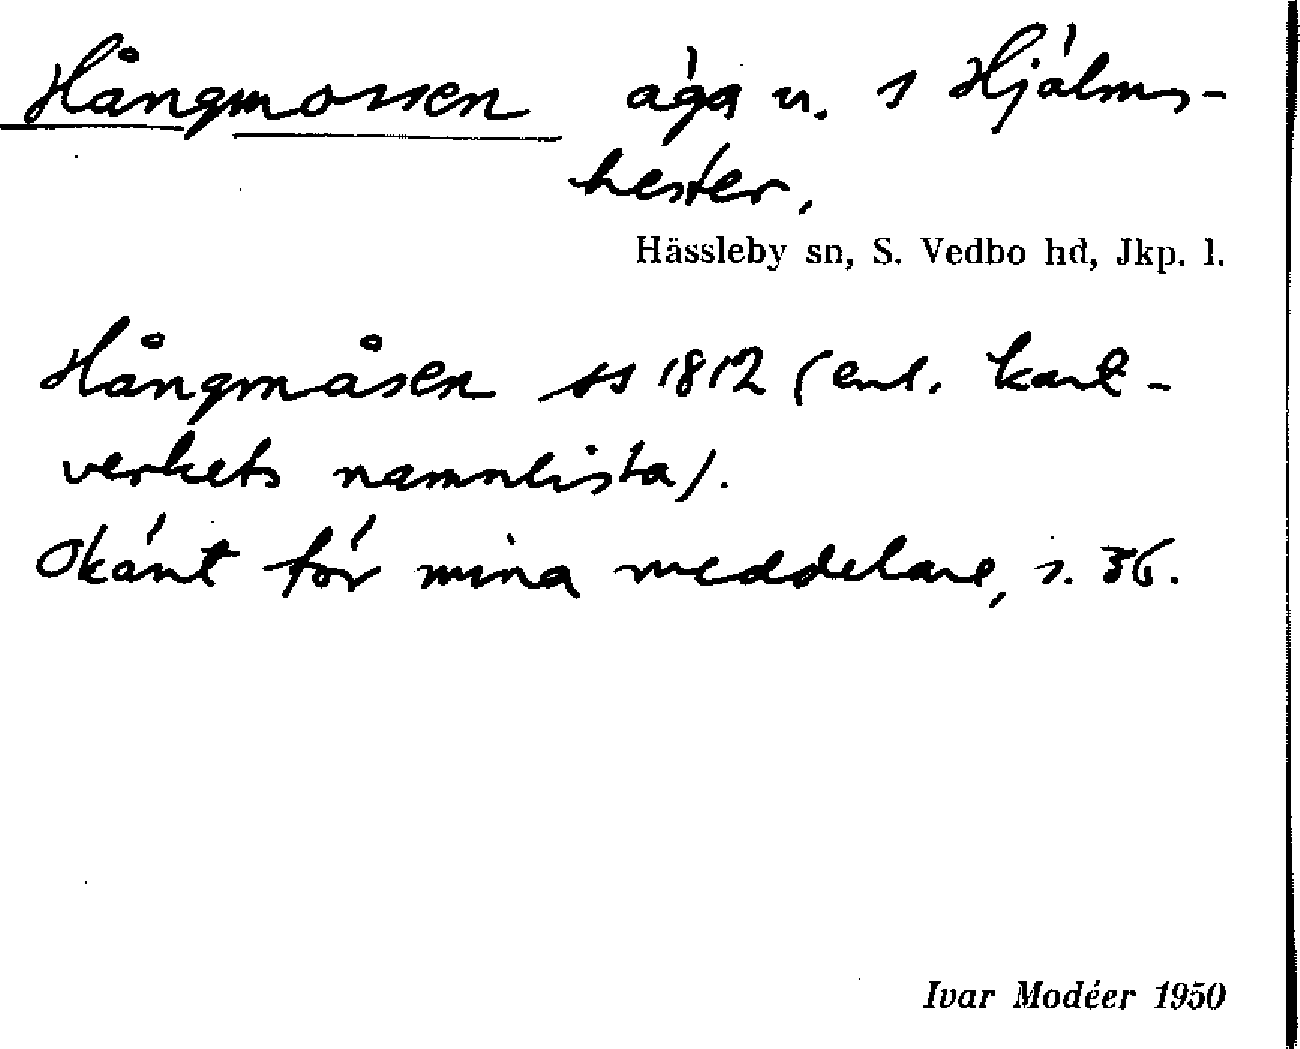 Hångmossen äga u. s Hjälms-
hester.
Hässleby sn, S. Vedbo hd, Jkp. l.
Hångmåsen ss 1812 (enl. kart-
verkets namnlista).
Okänt för mina meddelare, s. 36.
Ivar Modéer 1950